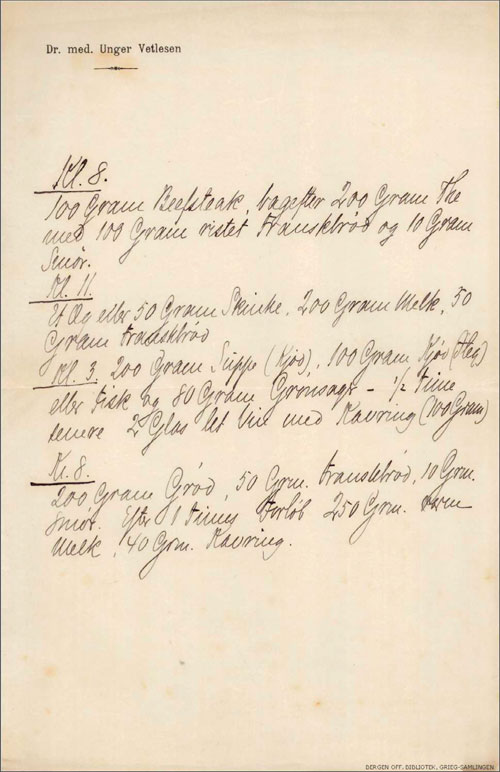 Dr. med. Unger Vetlesen
Kl. 8.
100 Gram Beefsteak, bagefter 200 Gram The
med 100 Gram ristet Franskbrød og 10 Gram
Smør.
Kl. 11.
Et Æg eller 50 Gram Skinke, 200 Gram Melk, 50
Gram Franskbrød
Kl. 3. 200 Gram Suppe (Kjød), 100 Gram Kjød
eller Fisk og 80 Gram Grønsager – 1/2 Time
senere 2 Glas let Vin med Kavring (100 Gram)
Kl. 8.
200 Gram Grød, 50 Grm. Franskbrød, 10 Grm.
Smør. Efter 1 Times Forløb 250 Grm. varm
Melk, 40 Grm. Kavring.
BERGEN OFF. BIBLIOTEK, GRIEG-SAMLINGEN